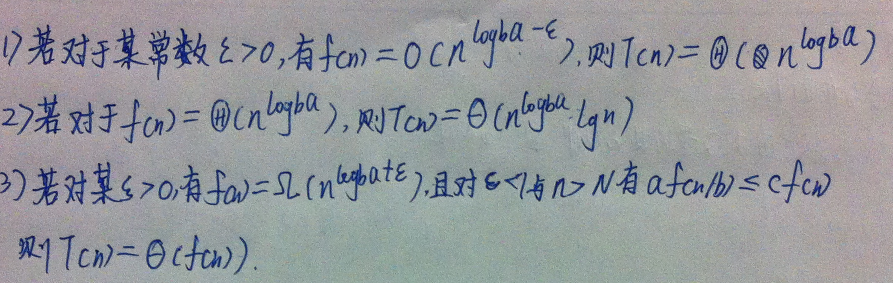 1) 若对于某常数ε>0,有f(n)=O(n^{log_b a-ε}),则T(n)=Θ(n^{log_b a})
2) 若对于f(n)=Θ(n^{log_b a}),则T(n)=Θ(n^{log_b a}·lgn)
3) 若对某ε>0,有f(n)=Ω(n^{log_b a+ε}),且对c<1与n>N有af(n/b)≤cf(n)
则T(n)=Θ(f(n)).